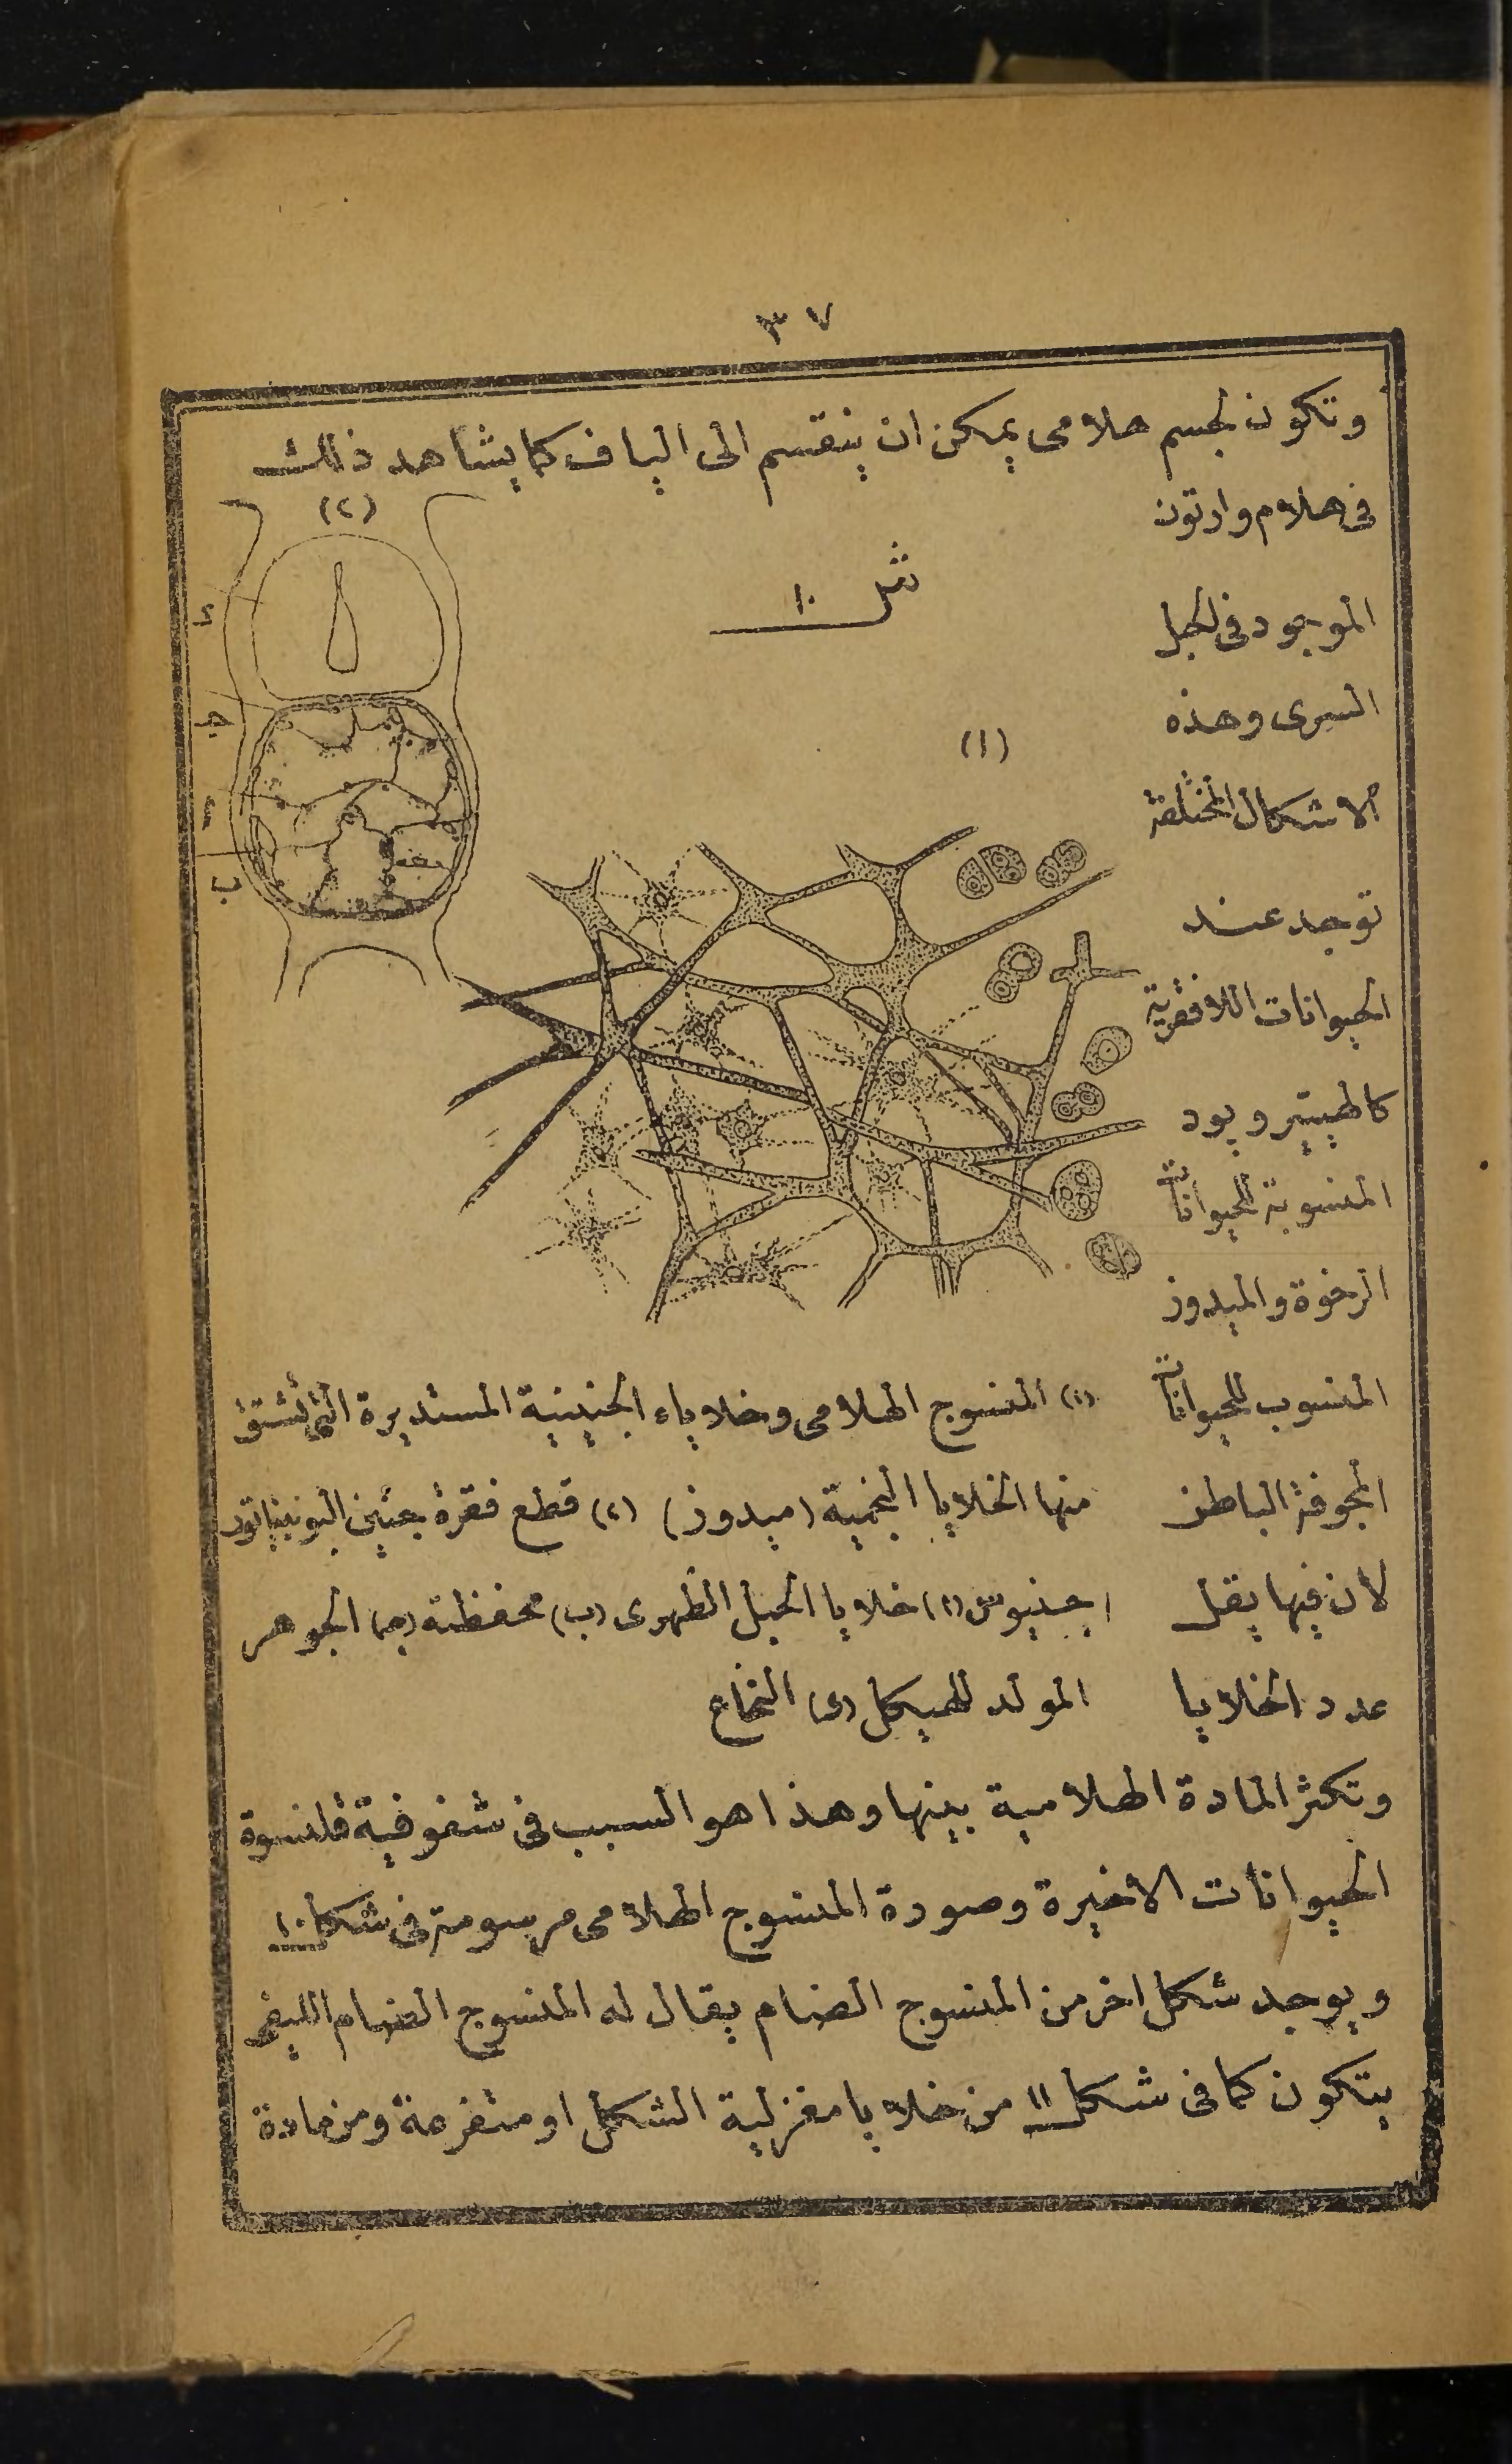 ٣٧
وتكون لجسم هلامى يمكن ان ينقسم الى الياف كما يشاهد ذلك
فى هلام وارتون
الموجود فى الحبل
السرى وهذه
الاشكال المختلفة
توجد عند
الحيوانات اللافقرية
كالهيتيروبود
المنسوبة للحيوانات
الرخوة والميدوز
المنسوب للحيوانات
المجوفة الباطن
لان فيها يقل
عدد الخلايا
شكل ١٠
(١)
(٢)
د
جـ
ا
ب
(١) المنسوج الهلامى وخلاياه الجنينية المستديرة التى تشتق
منها الخلايا النجمية (ميدوز) (٢) قطع فقرة جنين
(ا) خلايا الحبل الظهرى (ب) محفظته (جـ) الجوهر
المولد للهيكل (د) النخاع
وتكثر المادة الهلامية بينها وهذا هو السبب فى شفوفية قلنسوة
الحيوانات الاخيرة وصورة المنسوج الهلامى مرسومة فى شكل ١٠
ويوجد شكل اخر من المنسوج الضام يقال له المنسوج الضام الليفى
يتكون كما فى شكل ١١ من خلايا مغزلية الشكل او متفرعة ومن مادة